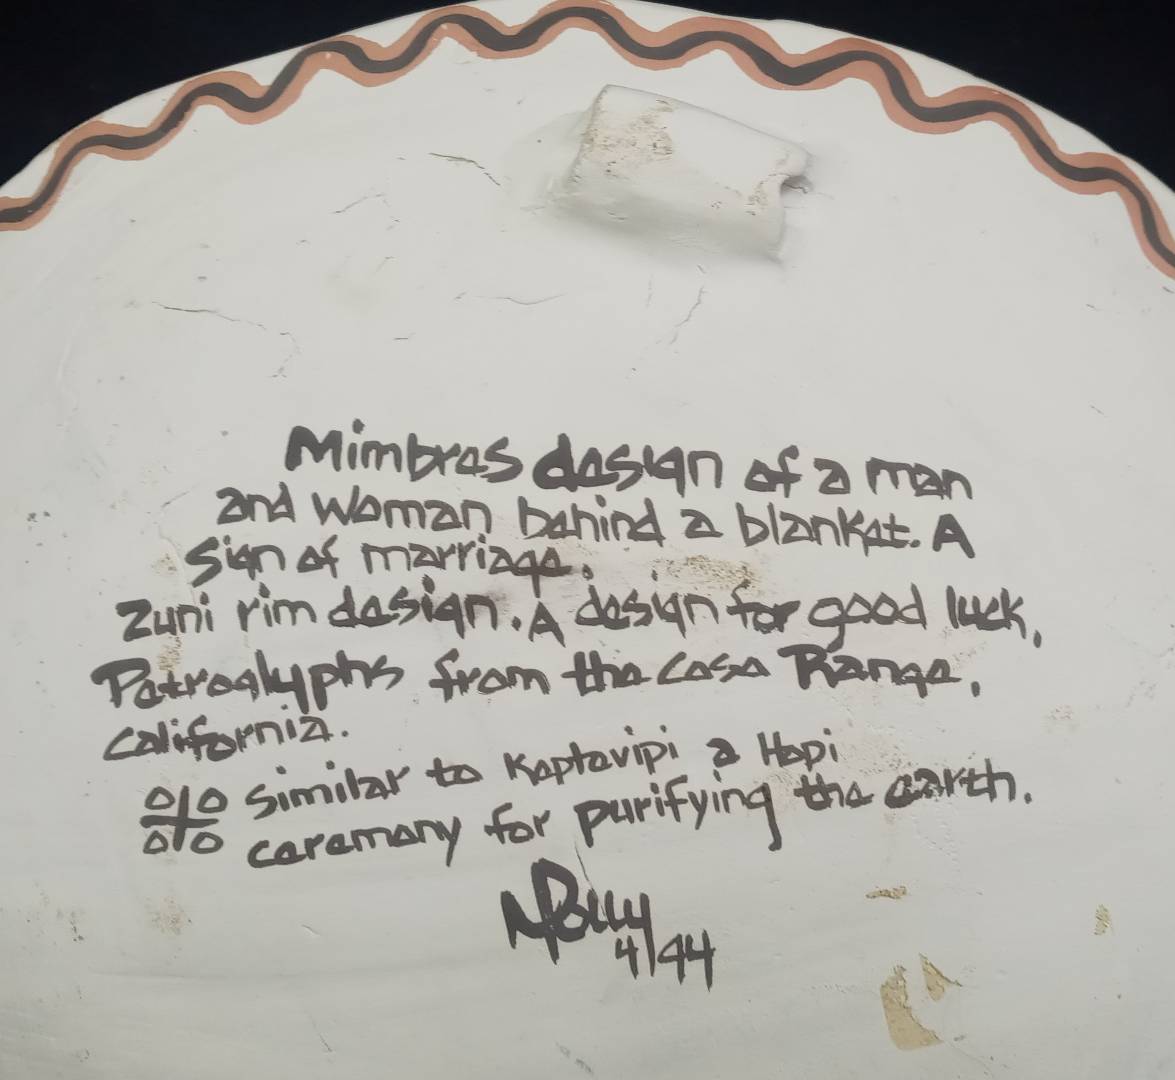 Mimbres design of a man
and woman behind a blanket. A
sign of marriage.
Zuni rim design. A design for good luck,
Petroglyphs from the Coso Range,
California.
similar to Koptavipi a Hopi
ceremony for purifying the earth.
4/94